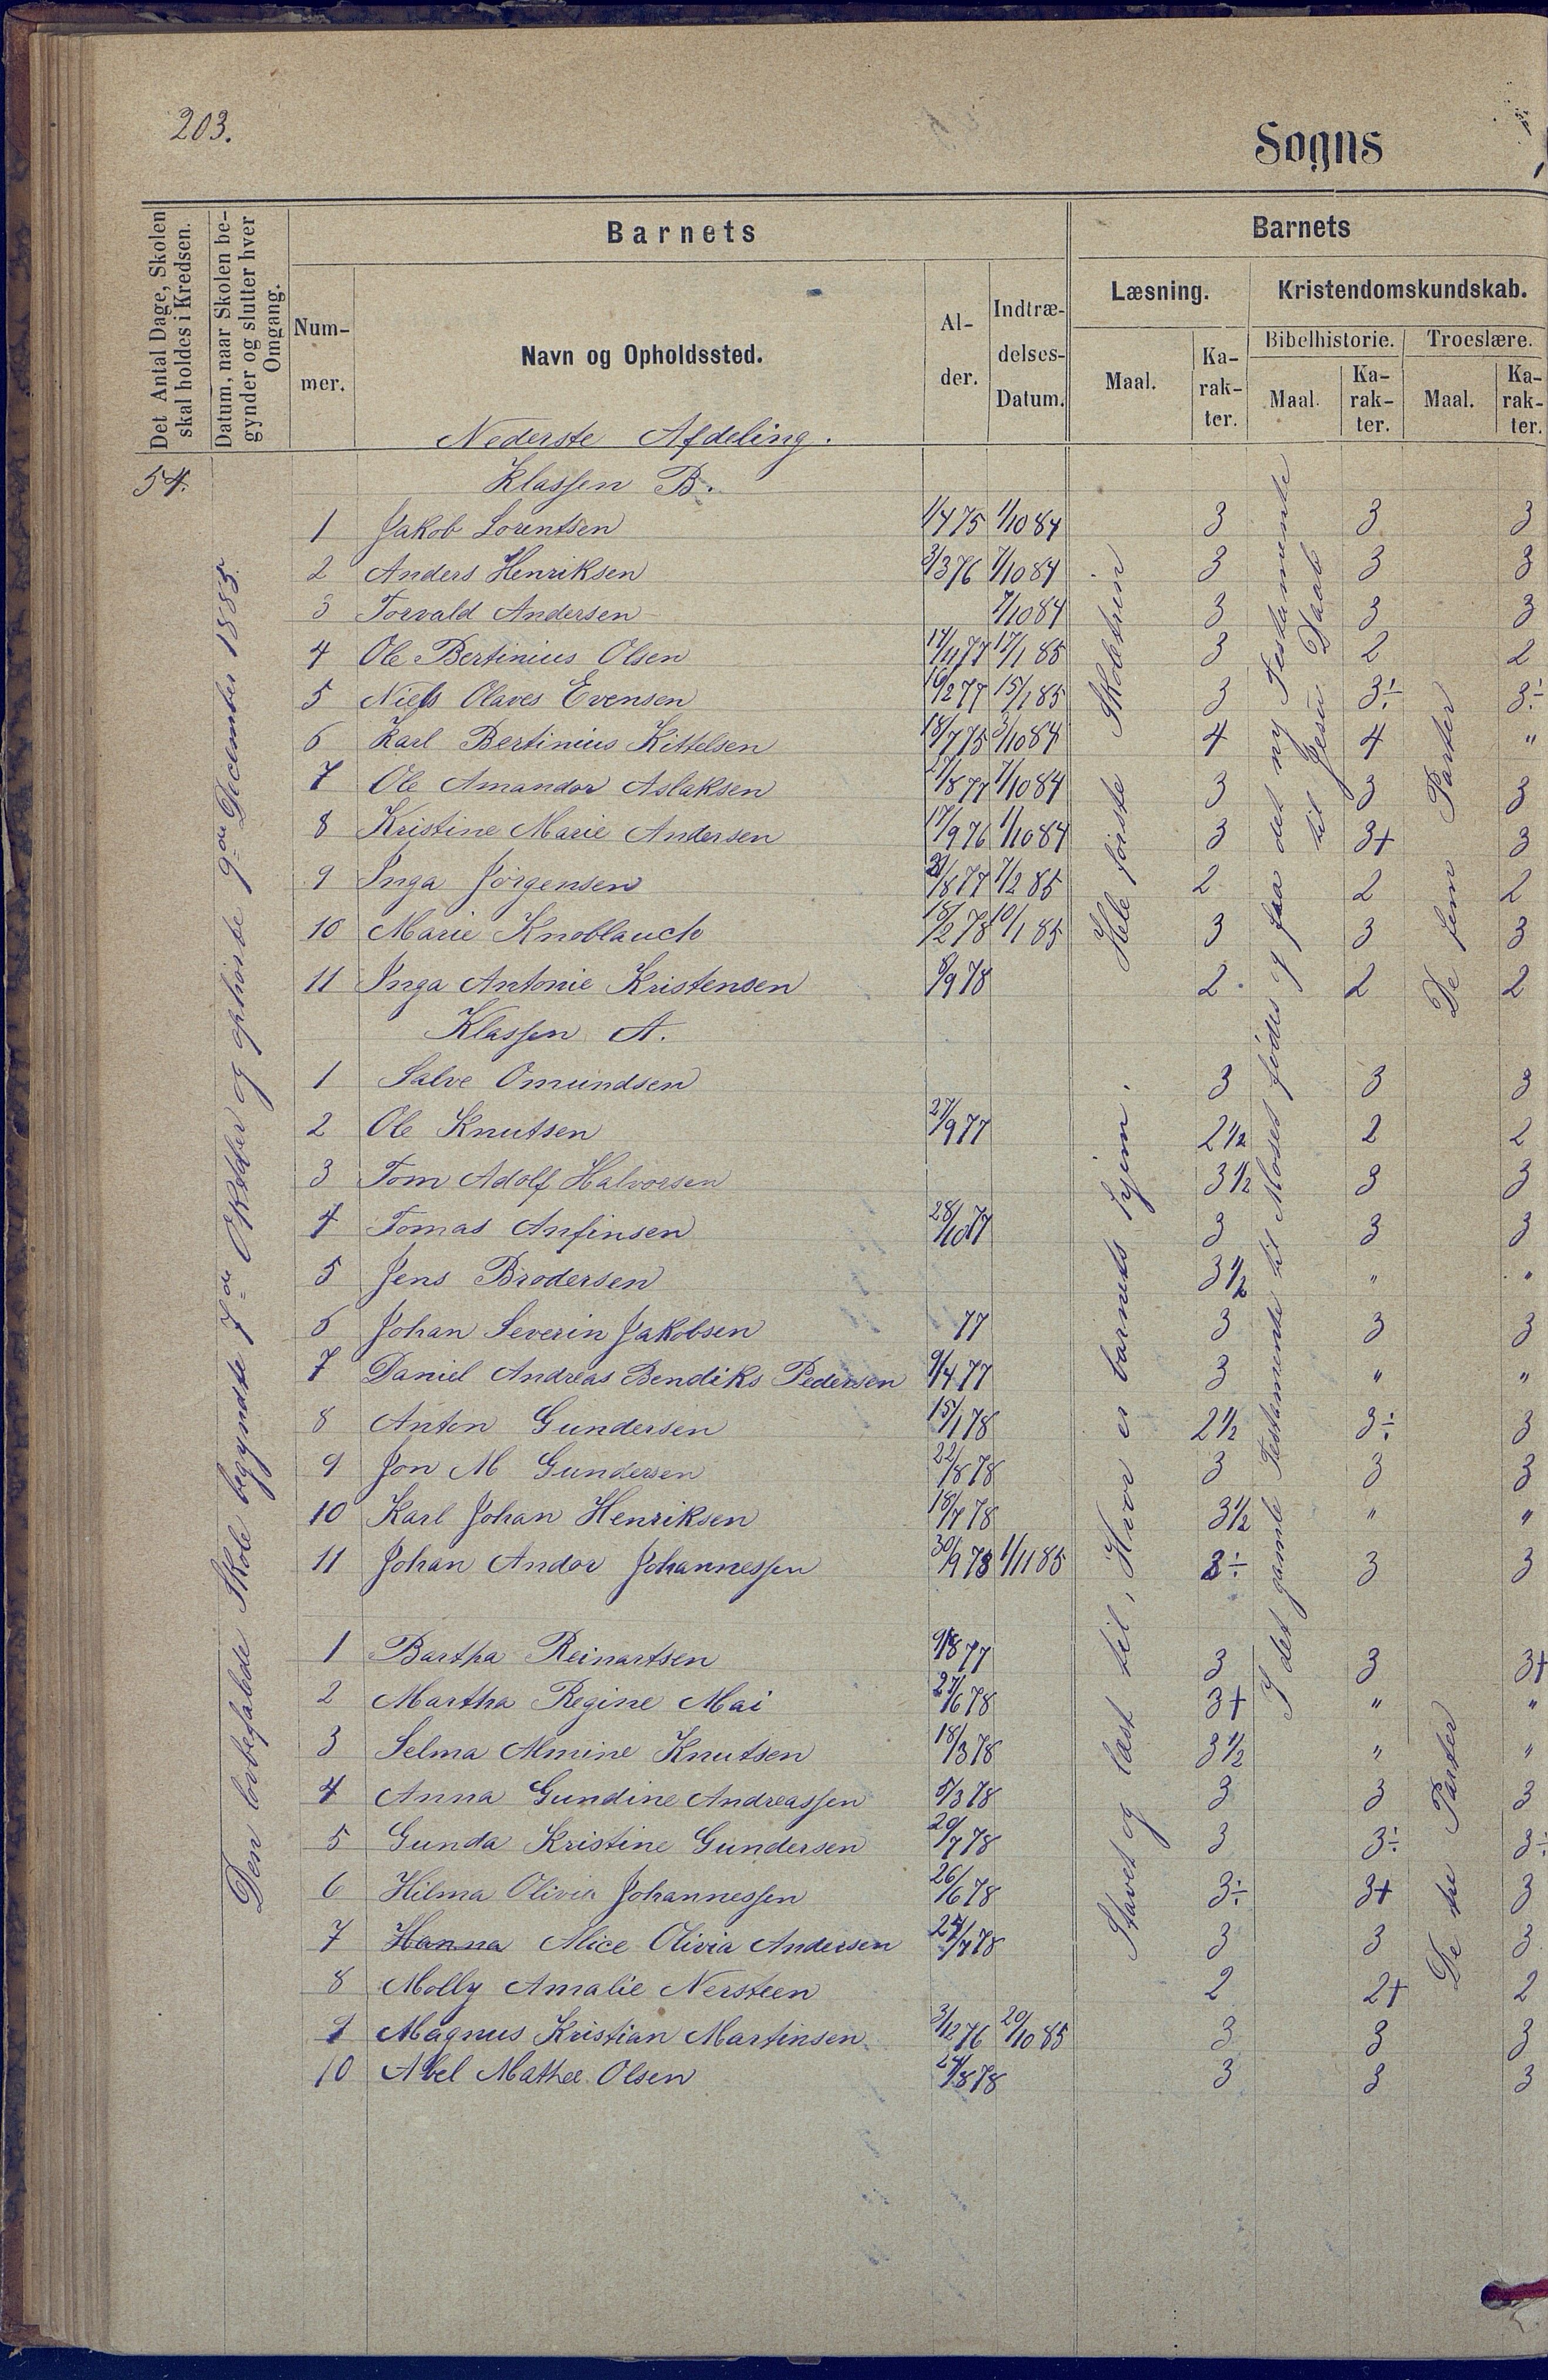 203.
Sogns
Det Antal Dage, Skolen skal holdes i Kredsen.
Datum, naar Skolen begynder og slutter hver Omgang.
Barnets
Barnets
Nummer.
Navn og Opholdssted.
Alder.
Indtrædelses-Datum.
Læsning.
Kristendomskundskab.
Bibelhistorie.
Troeslære.
Maal.
Karakter.
Maal.
Karakter.
Maal.
Karakter.
Nederste Afdeling.
54. Klassen B.
1 Jakob Lorentsen 1/4 75 1/10 84 3 3 3
2 Anders Henriksen 3/3 76 7/10 84 3 3 3
3 Torvald Andersen 7/10 84 3 3 3
4 Ole Bertinius Olsen 14/11 77 17/1 85 3 2 2
5 Niels Olaves Evensen 16/2 77 15/1 85 3 3÷ 3÷
6 Karl Bertinius Kittelsen 18/7 75 3/10 84 4 4 "
7 Ole Amandor Aslaksen /8 77 7/10 84 3 3 3
8 Kristine Marie Andersen 17/9 76 1/10 84 3 3+ 3
9 Inga Jørgensen /8 77 7/2 85 2 2 2
10 Marie Knoblauch 18/2 78 10/1 85 3 3 3
11 Inga Antonie Kristensen 8/9 78 2 2 2
Klassen A.
1 Salve Omundsen 3 3 3
2 Ole Knutsen 27/9 77 2 1/2 2 2
3 Tom Adolf Halvorsen 3 1/2 3 3
4 Tomas Anfinsen 28/10 77 3 3 3
5 Jens Brodersen 3 1/2 " "
6 Johan Severin Jakobsen 77 3 3 3
7 Daniel Andreas Bendiks Pedersen 9/4 77 3 " "
8 Anton Gundersen 15/1 78 2 1/2 3÷ 3
9 Jon M Gundersen 22/8 78 3 3 3
10 Karl Johan Henriksen 18/7 78 3 1/2 " "
11 Johan Andor Johannessen 30/9 78 1/11 85 3÷ 3 3
1 Bartha Reinartsen 9/8 77 3 3 3+
2 Martha Regine Mai 27/6 78 3+ " "
3 Selma Almine Knutsen 18/3 78 3 1/2 " "
4 Anna Gundine Andreassen 5/3 78 3 3 3
5 Gunda Kristine Gundersen 20/7 78 3 3÷ 3÷
6 Hilma Olivia Johannessen 26/6 78 3÷ 3+ 3
7 Hanna Alice Olivia Andersen 24/7 78 3 3 3
8 Molly Amalie Nersteen 2 2+ 2
9 Magnus Kristian Martinsen 3/12 76 20/10 85 3 3 3
10 Abel Mathee Olsen 24/8 78 3 3 3
Den lovbefalede Skole begyndte 7de Oktober og ophørte 9de December 1885.
Hele første Skoletrin
Stavet og læst til, Hvor er barnets hjem.
I det gamle Testamente til Moses fødes og fra det ny Testamente
til Jesu Daab
De fem Parter
De tre Parter